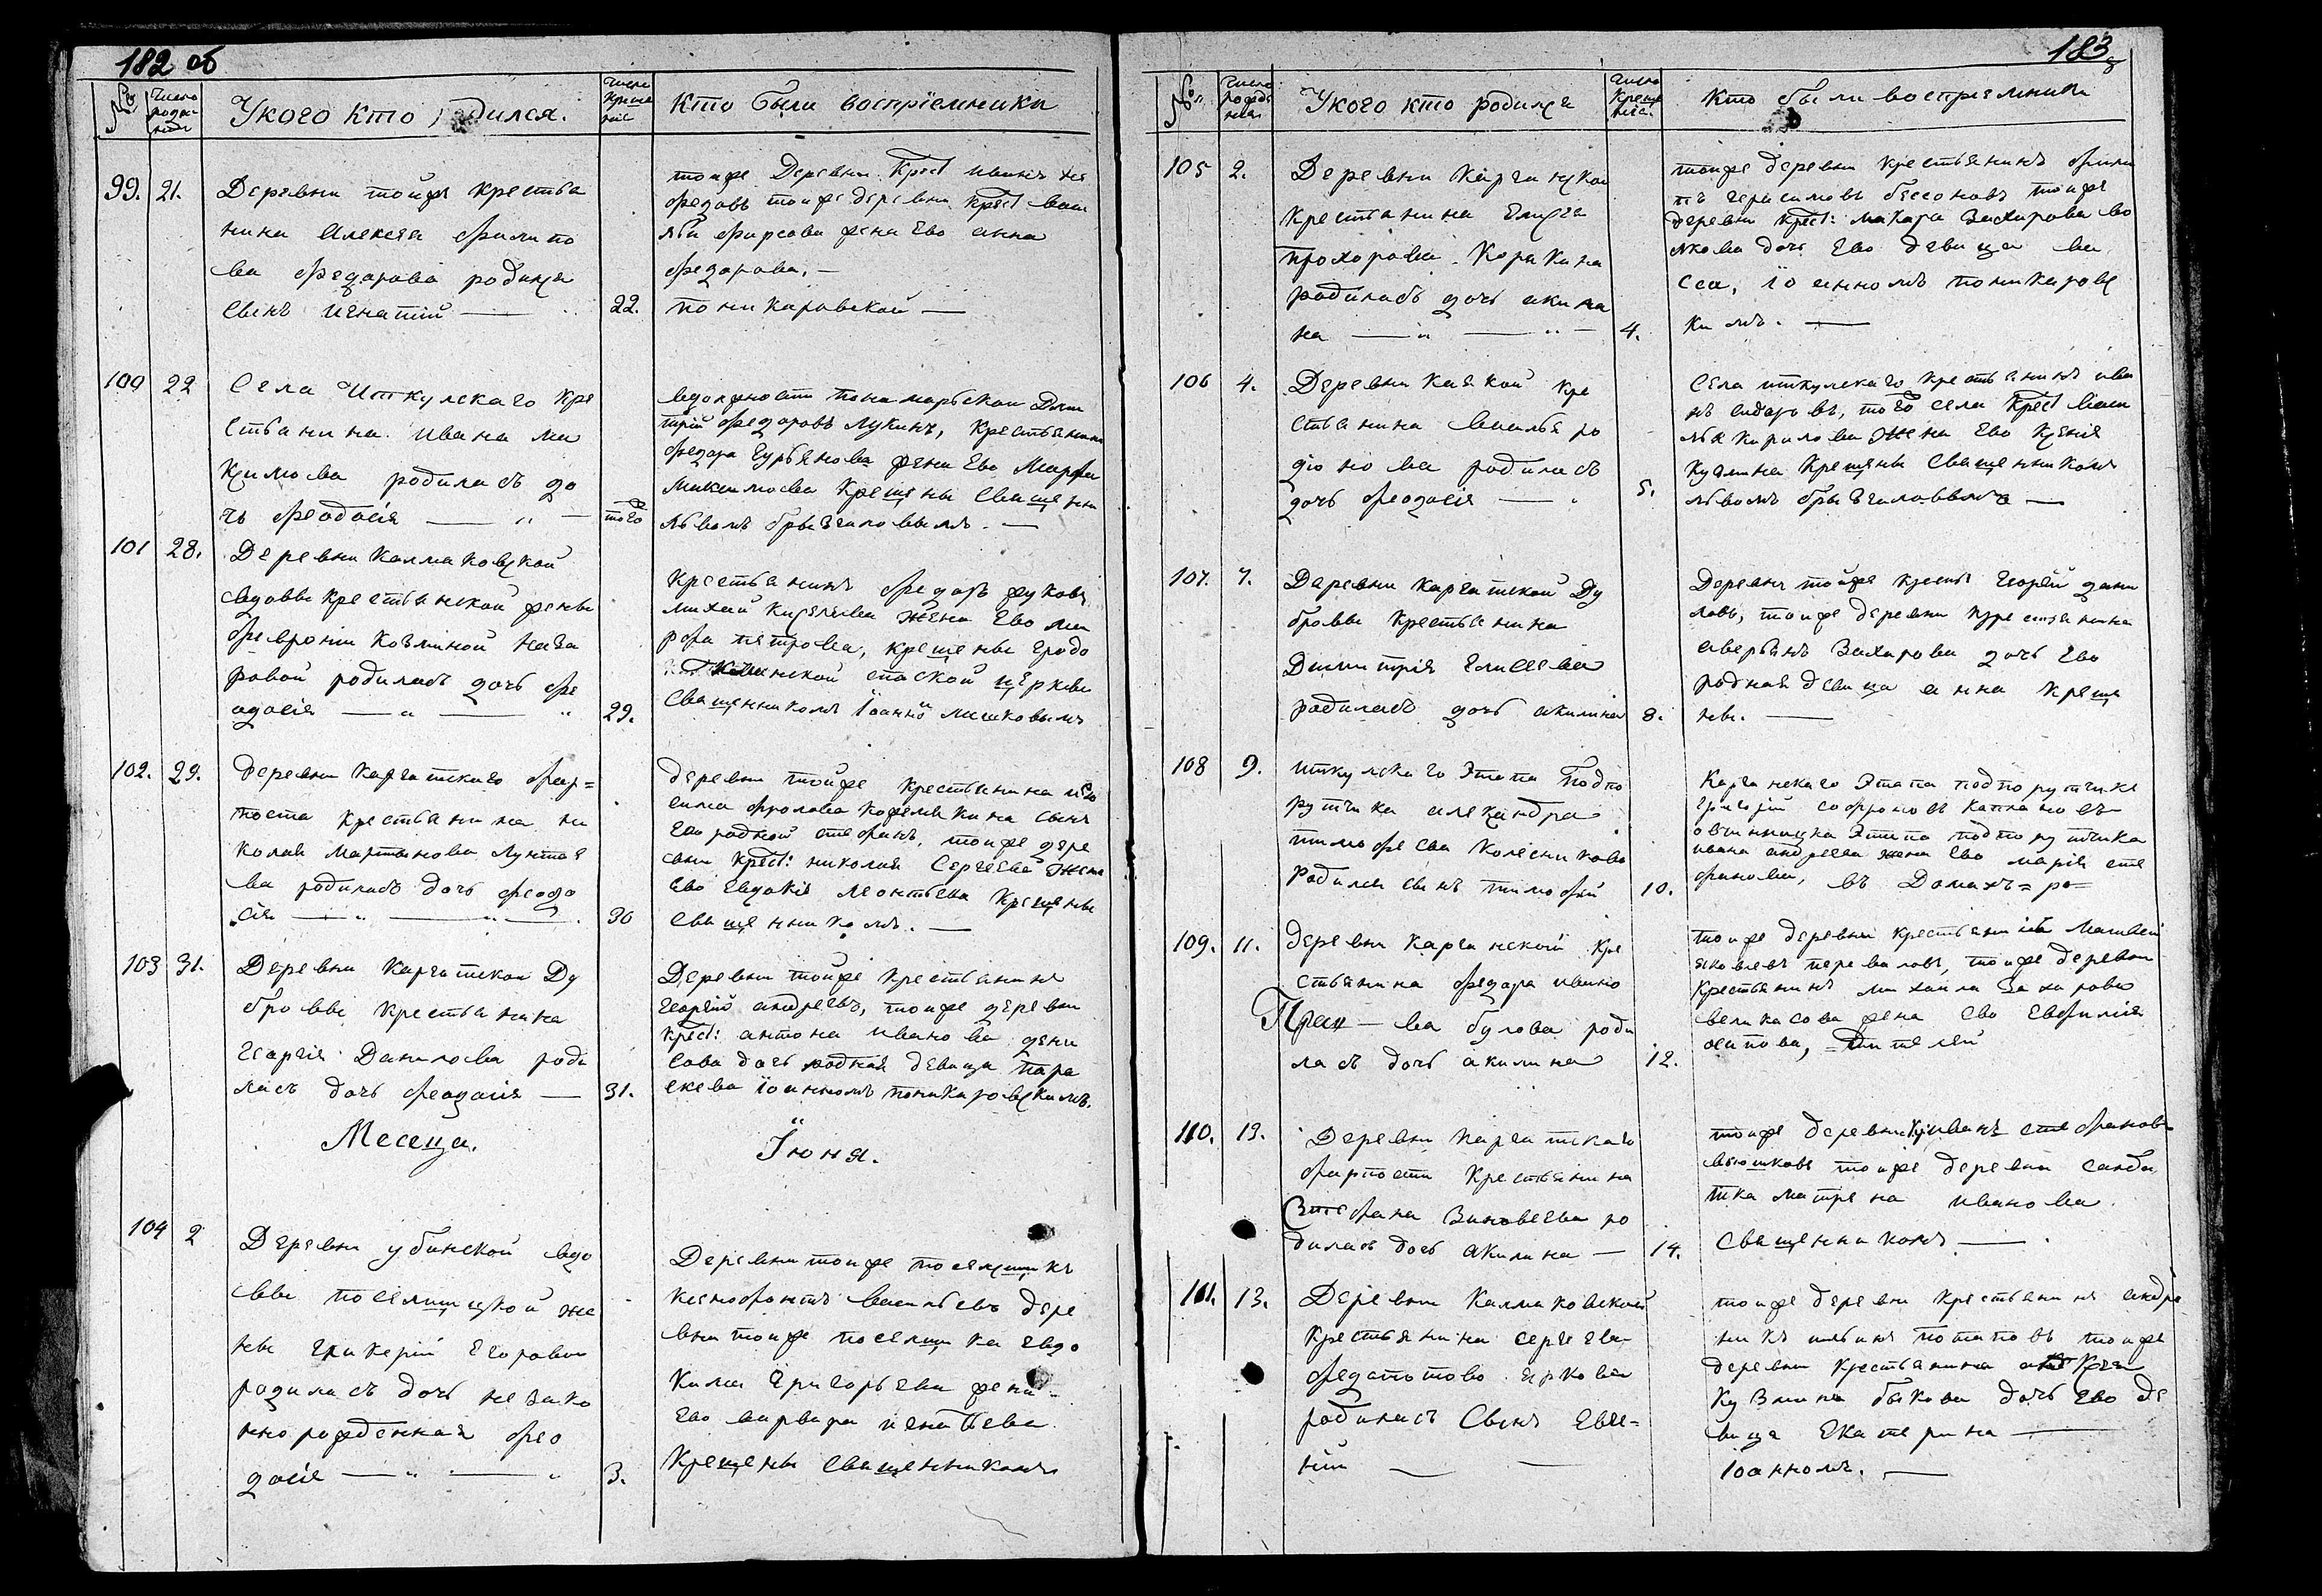 182 об
№
Число рожде нія
У кого кто родился.
Число креще нія
Кто были воспріемники
99. 21. Деревни тойже крестья
нина Алексея Филипо
ва Федорова родился
сынъ Игнатій — 22.
тоиже Деревни Крест иванъ
федовъ тоиже деревни Крест Васи
лья фирсова жена Ево анна
федорова. —
поникаровской —
100 22 Села Иткулскаго кре
стьянина Ивана Ма
ксимова родилась до
чь феодосія — того
вдолжности понамарьскои Дми
трій федоровъ Лукинъ, крестьянина
федора Гурьянова жена Ево Марфа
Максимова Крещены Священни
львомъ —
101 28. Деревни Калмаковской
вдовы крестьянской жены
февроніи Козминой Наза
ровой родилась дочь фе
одосія — " — " 29.
Крестьянинъ федоръ жуковъ
жена Ево Ма
рфа петрова, крещены Градо
Каинской спаской церкви
Священникомъ Іоанно Мишковымъ
102. 29. Деревни Каргатскаго фар=
поста крестьянина ни
колая Мартынова Лунтое
ва родилась дочь феодо
сія — " — " — 30
Деревни тоиже крестьянина
сима фролова сынъ
Ево родной стефанъ, тоиже дере
вни крест: николая Сергеева жена
Ево Евдокія Леонтьева Крещены
священникомъ. —
103 31. Деревни Каргатскои Ду
бровы крестьянина
Георгія Данилова роди
лась дочь феодосія — 31.
Деревни тойже крестьянинъ
Георгій андреевъ, тоиже деревни
крест: антона иванова дени
сова дочь родная девица пара
скева Іоанномъ поникаровскимъ.
Месеца. Іюня.
104 2 Деревни убинской вдо
вы поселщицкой же
ны Гликеріи Егоровои
родилась дочь незако
нно рожденная фео
досія — " — " 3.
Деревни тоиже поселщикъ
ксенофонтъ Васильевъ дере
вни тоиже поселщика Евдо
кима Григорьева жена
Ево варвара игнатьева
Крещены священникомъ
183
№
Число рожде нія
У кого кто родился
Число креще нія.
Кто были воспріемники
105 2. Деревни Карганской
крестьянина Елисея
прохорова Корякина
родилась дочь акили
на — " — " — 4.
тоиже деревни крестьянинъ фили
пъ герасимовъ бессоновъ тоиже
деревни крест: макара Захарова во
лкова дочь Ево девица ва
сса, іоанномъ поникаровс
кимъ. —
106 4. Деревни Каякой кре
стьянина Василья ро
діонова родилась
дочь феодосія — 5.
Села иткулскаго крестьянинъ ива
нъ сидаровъ, того села Крест Васи
лья кирилова жена Ево Ксенія
Кузмина Крещены Священникомъ
львомъ —
107. 7. Деревни Каргатской Ду
бровы крестьянина
Димитрія Елисеева
родилась дочь акилина 8.
Деревни тойже крестья Георгій дани
ловъ, тоиже деревни крестьянина
аверьянъ Захарова дочь Ево
родная девица анна креще
ны. —
108 9. иткулскаго Этапа Подпо
рутчика александра
тимофеева Колесникова
родился сынъ тимофей 10.
Карганскаго Этапа подпорутчикъ
григорій софроновъ каплановъ
овчинницка Этапа подпорутчика
ивана андреева жена Ево марія сте
фанова, въ
109. 11. Деревни Карганской кре
стьянина федора ивано
ва булова роди
лась дочь акилина 12.
тоиже деревни крестьянинъ Матвей
яковлевъ переваловъ, тоиже деревни
Крестьянинъ михаила Захарова
великосова жена Ево Евфимія
осипова,
110. 13. Деревни Каргатскаго
фарпоста крестьянина
Стефана Зиновеева ро
дилась дочь Акилина — 14.
тоиже деревни иванъ стефановъ
вьюшковъ тоиже деревни салда
тка матрена иванова
священникомъ —
111. 13. Деревни Калмаковской
крестьянина сергеева
федототово
родился Сынъ Евге=
ній — —
тоиже деревни крестьянинъ андро
никъ потаповъ тоиже
деревни крестьянина алексея
Кузмина быкова дочь Ево де
вица Екатерина —
іоанномъ. —